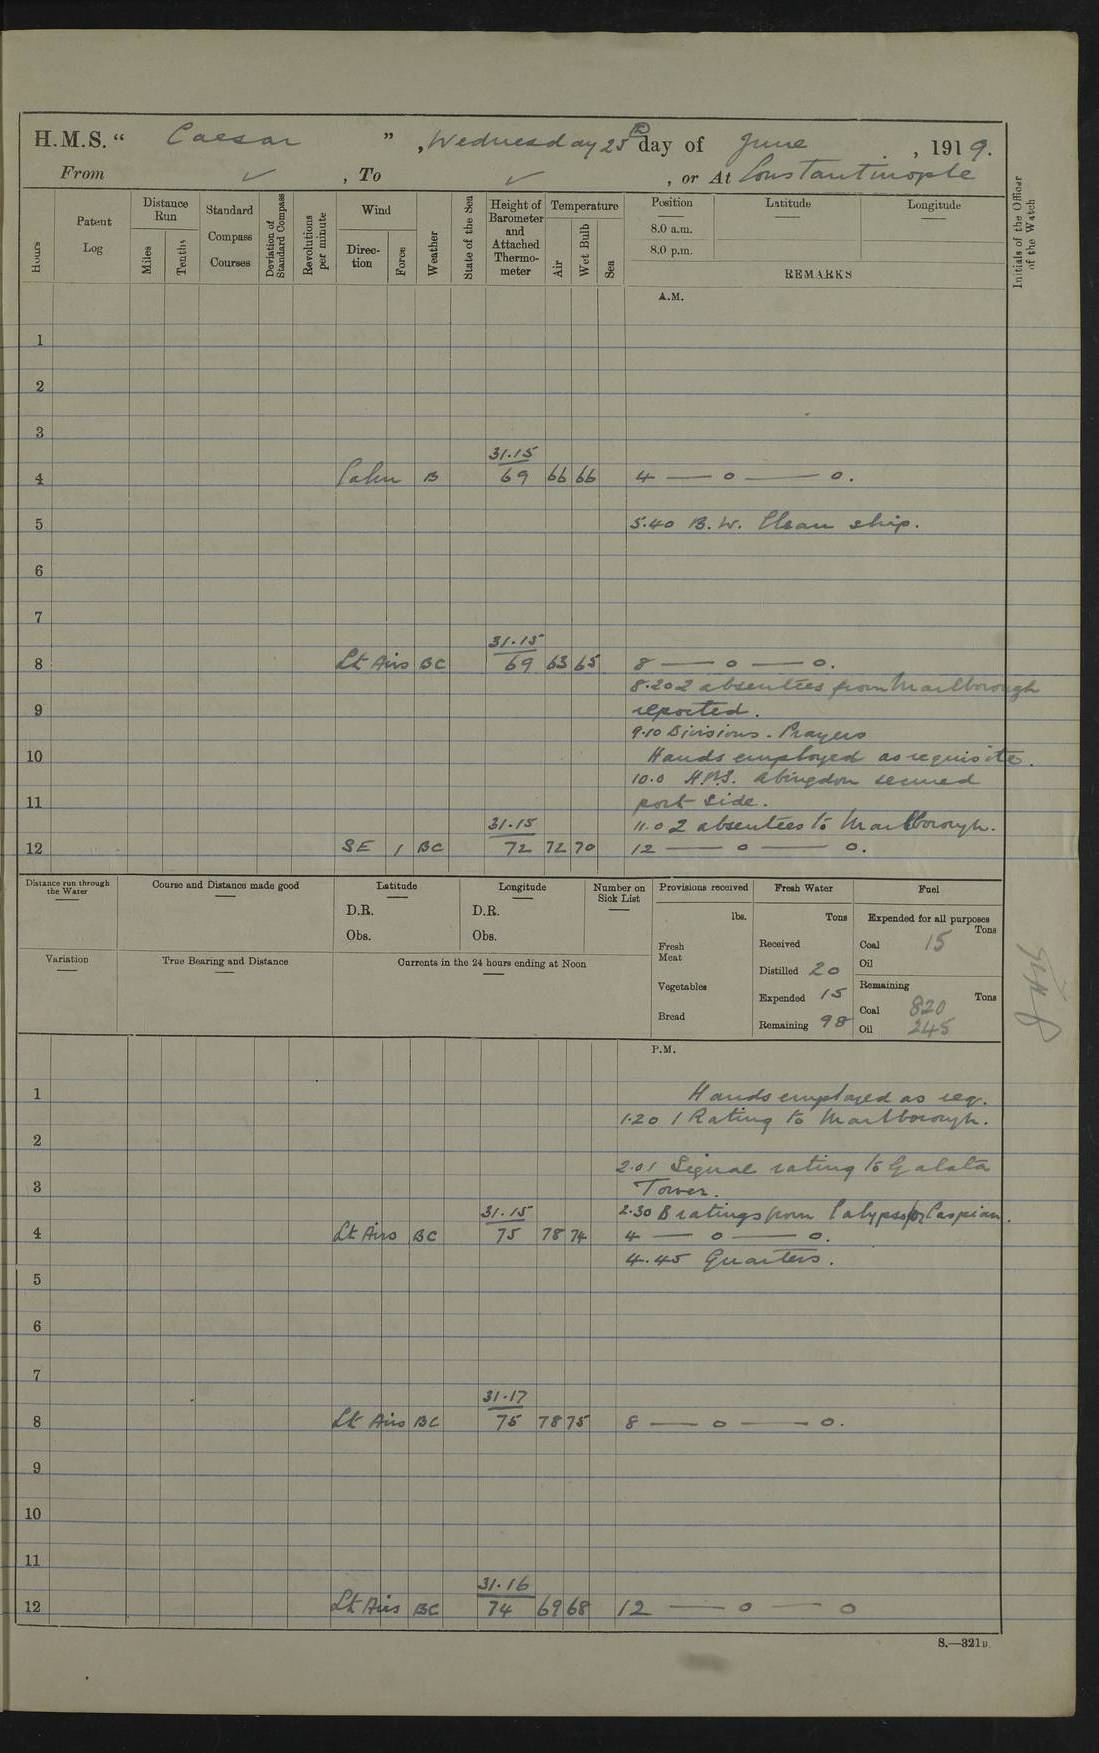 H.M.S. “ Caesar ” , Wednesday 25th day of June , 1919.
From ✓ , To ✓ , or At Constantinople
Hours
Patent Log
Distance Run
Miles
Tenths
Standard Compass Courses
Deviation of Standard Compass
Revolutions per minute
Wind
Direction
Force
Weather
State of the Sea
Height of Barometer and Attached Thermometer
Temperature
Air
Wet Bulb
Sea
Position
8.0 a.m.
8.0 p.m.
Latitude
Longitude
REMARKS
Initials of the Officer of the Watch
A.M.
1
2
3
31.15
4 Calm B 69 66 66 4 — o — o.
5 5.40 B.W. Clean ship.
6
7
31.15
8 Lt Airs BC 69 63 65 8 — o — o.
8.20 2 absentees from Marlborough
9 reported.
9.10 Divisions. Prayers
10 Hands employed as requisite.
10.0 H.M.S. Abingdon secured
11 port side.
31.15 11.0 2 absentees to Marlborough.
12 SE 1 BC 72 72 70 12 — o — o.
Distance run through the Water
Course and Distance made good
Latitude
D.R.
Obs.
Longitude
D.R.
Obs.
Number on Sick List
Provisions received
lbs.
Fresh Meat
Vegetables
Bread
Fresh Water
Tons
Received
Distilled 20
Expended 15
Remaining 98
Fuel
Expended for all purposes
Tons
Coal 15
Oil
Remaining
Tons
Coal 820
Oil 245
Variation
True Bearing and Distance
Currents in the 24 hours ending at Noon
P.M.
1 Hands employed as req.
1.20 1 Rating to Marlborough.
2
2.0 1 Signal rating to Galata
3 Tower.
31.15 2.30 8 ratings from Calypso for Caspian.
4 Lt Airs BC 75 78 74 4 — o — o.
4.45 Quarters.
5
6
7
31.17
8 Lt Airs BC 75 78 75 8 — o — o.
9
10
11
31.16
12 Lt Airs BC 74 69 68 12 — o — o
S.—321D.